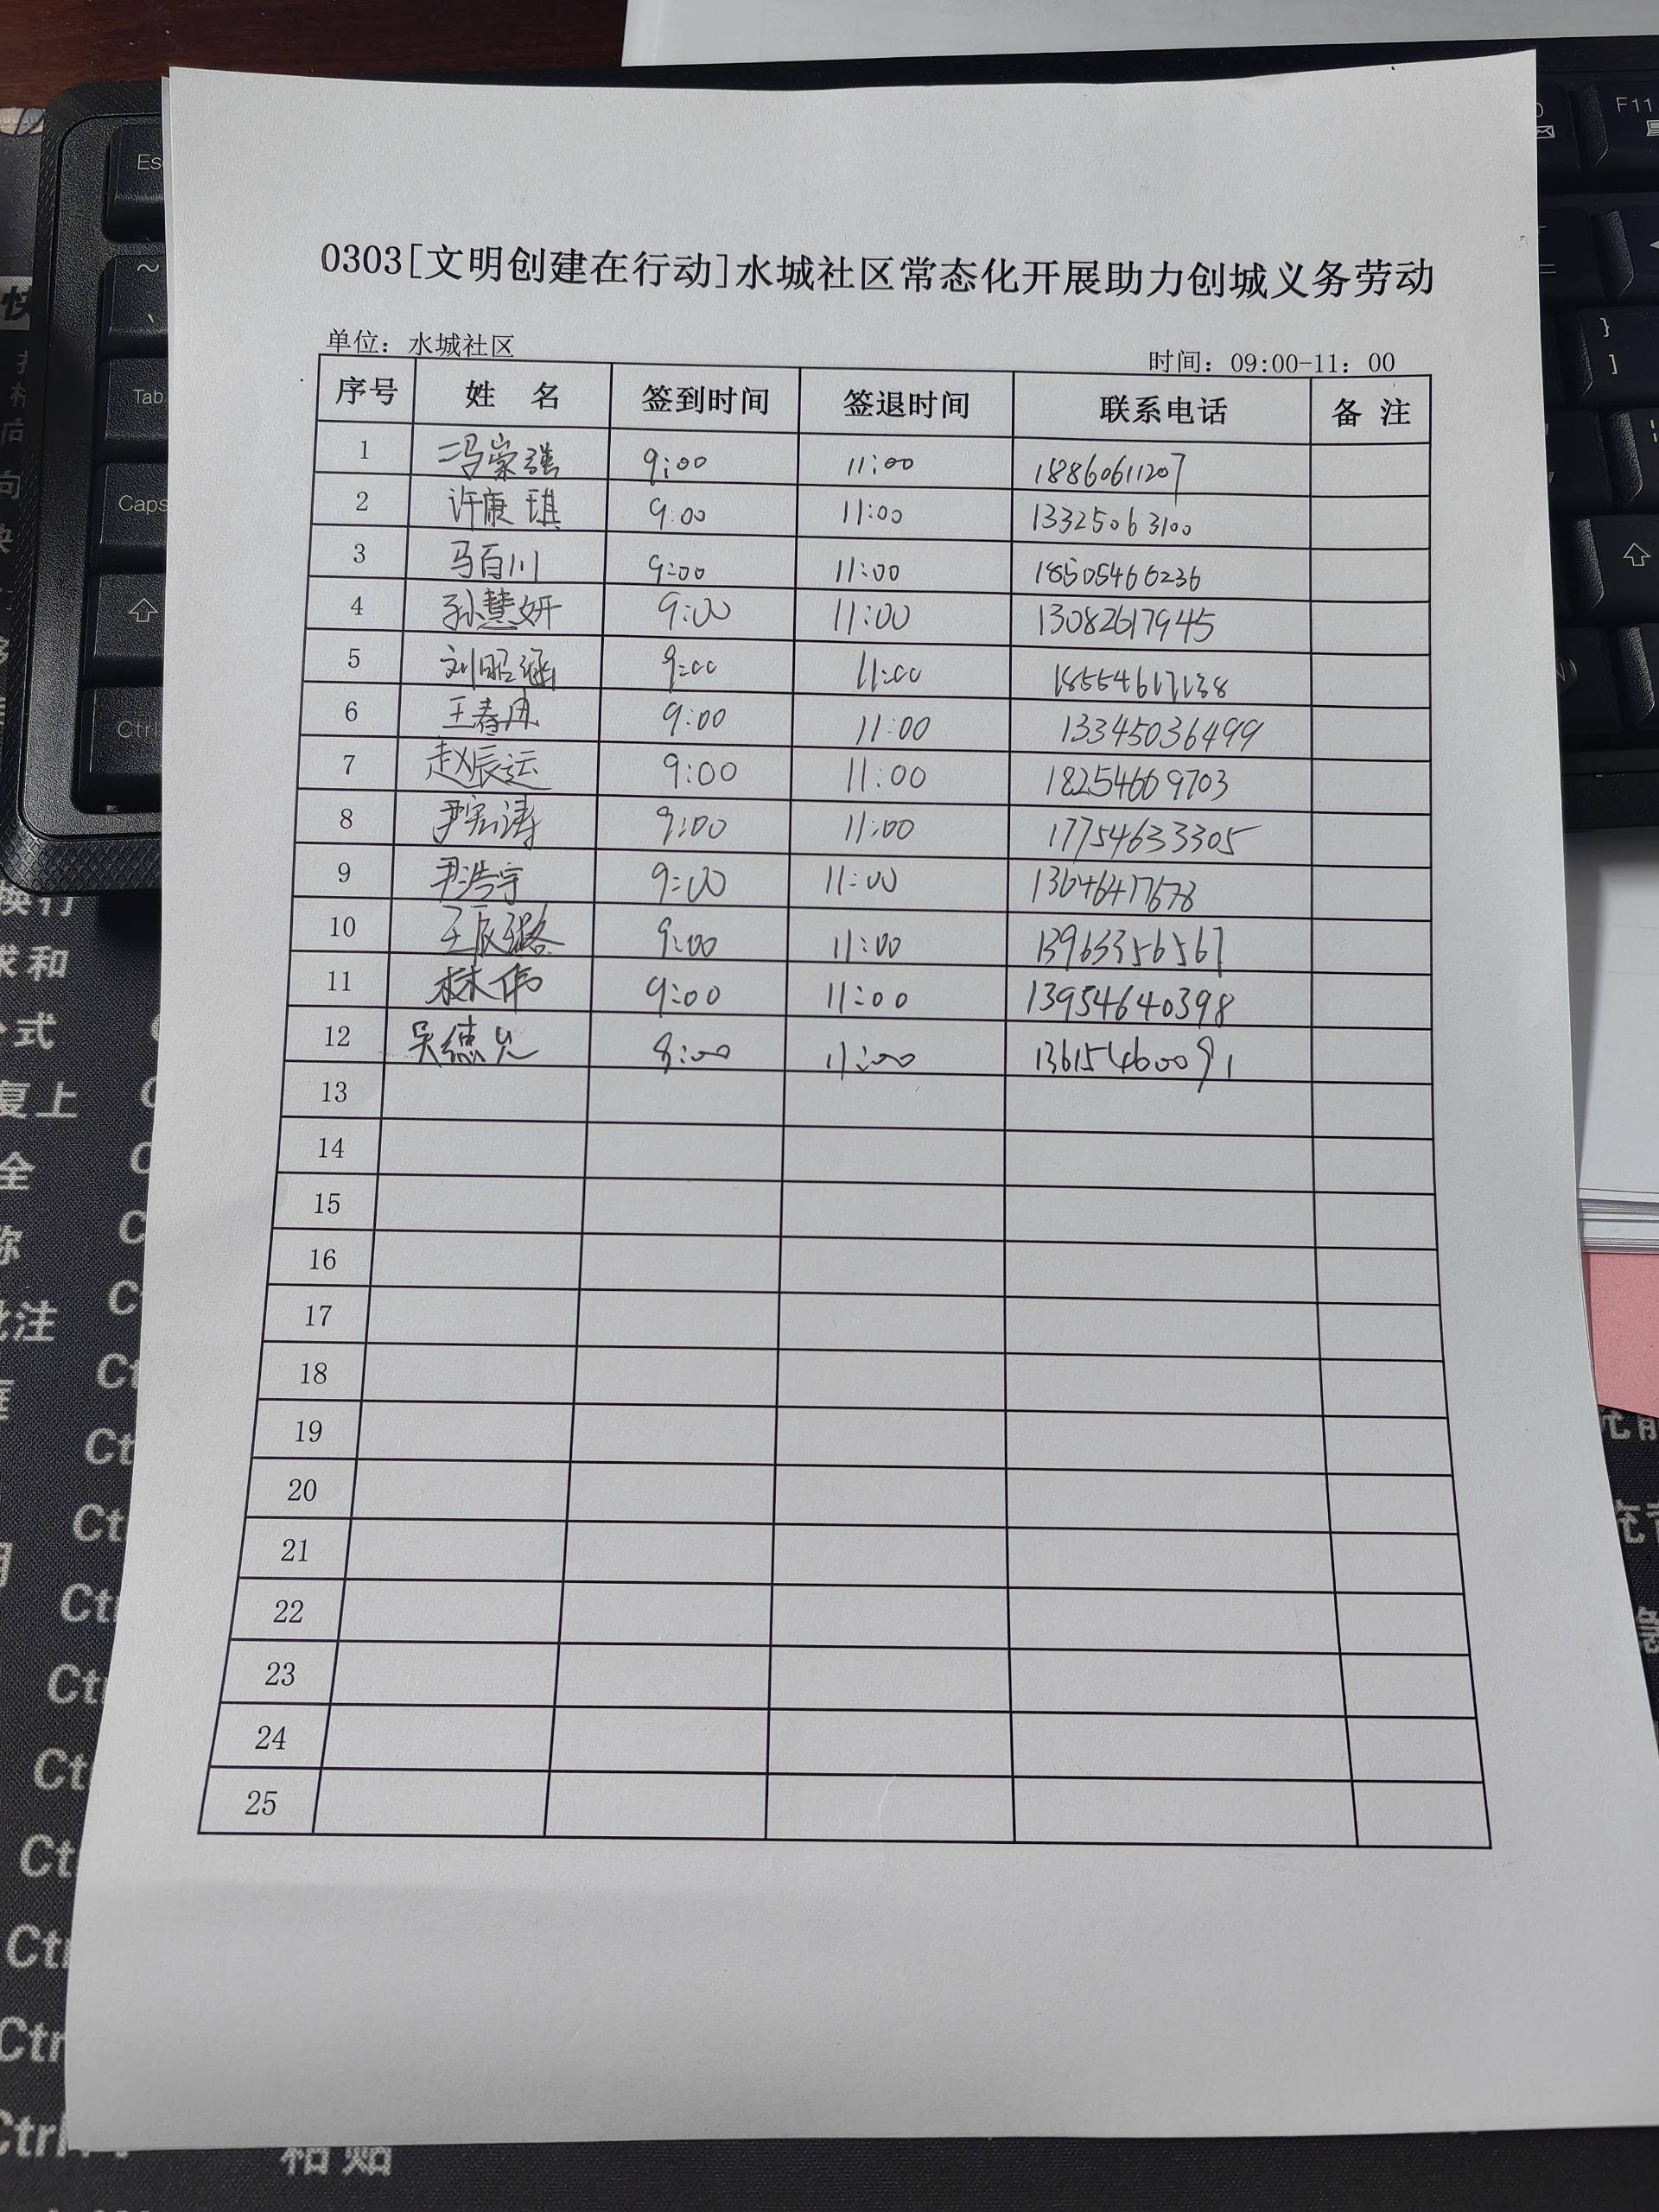 0303[文明创建在行动]水城社区常态化开展助力创城义务劳动
单位：水城社区
时间：09:00-11：00
序号 姓 名 签到时间 签退时间 联系电话 备 注
1 冯崇强 9:00 11:00 18860611207
2 许康琪 9:00 11:00 13325063100
3 马百川 9:00 11:00 18505466236
4 孙慧妍 9:00 11:00 13082617945
5 刘昭涵 9:00 11:00 18554617138
6 王春冉 9:00 11:00 13345036499
7 赵辰运 9:00 11:00 18254609703
8 尹宏涛 9:00 11:00 17754633305
9 尹浩宇 9:00 11:00 13646477678
10 王辰璐 9:00 11:00 13963356567
11 林伟 9:00 11:00 13954640398
12 吴德 11:00 13615460091
13
14
15
16
17
18
19
20
21
22
23
24
25
Esc
~
Tab
Caps
Ctrl
F11
}
]
换行
求和
公式
复上
全
称
批注
Ctrl
粘贴